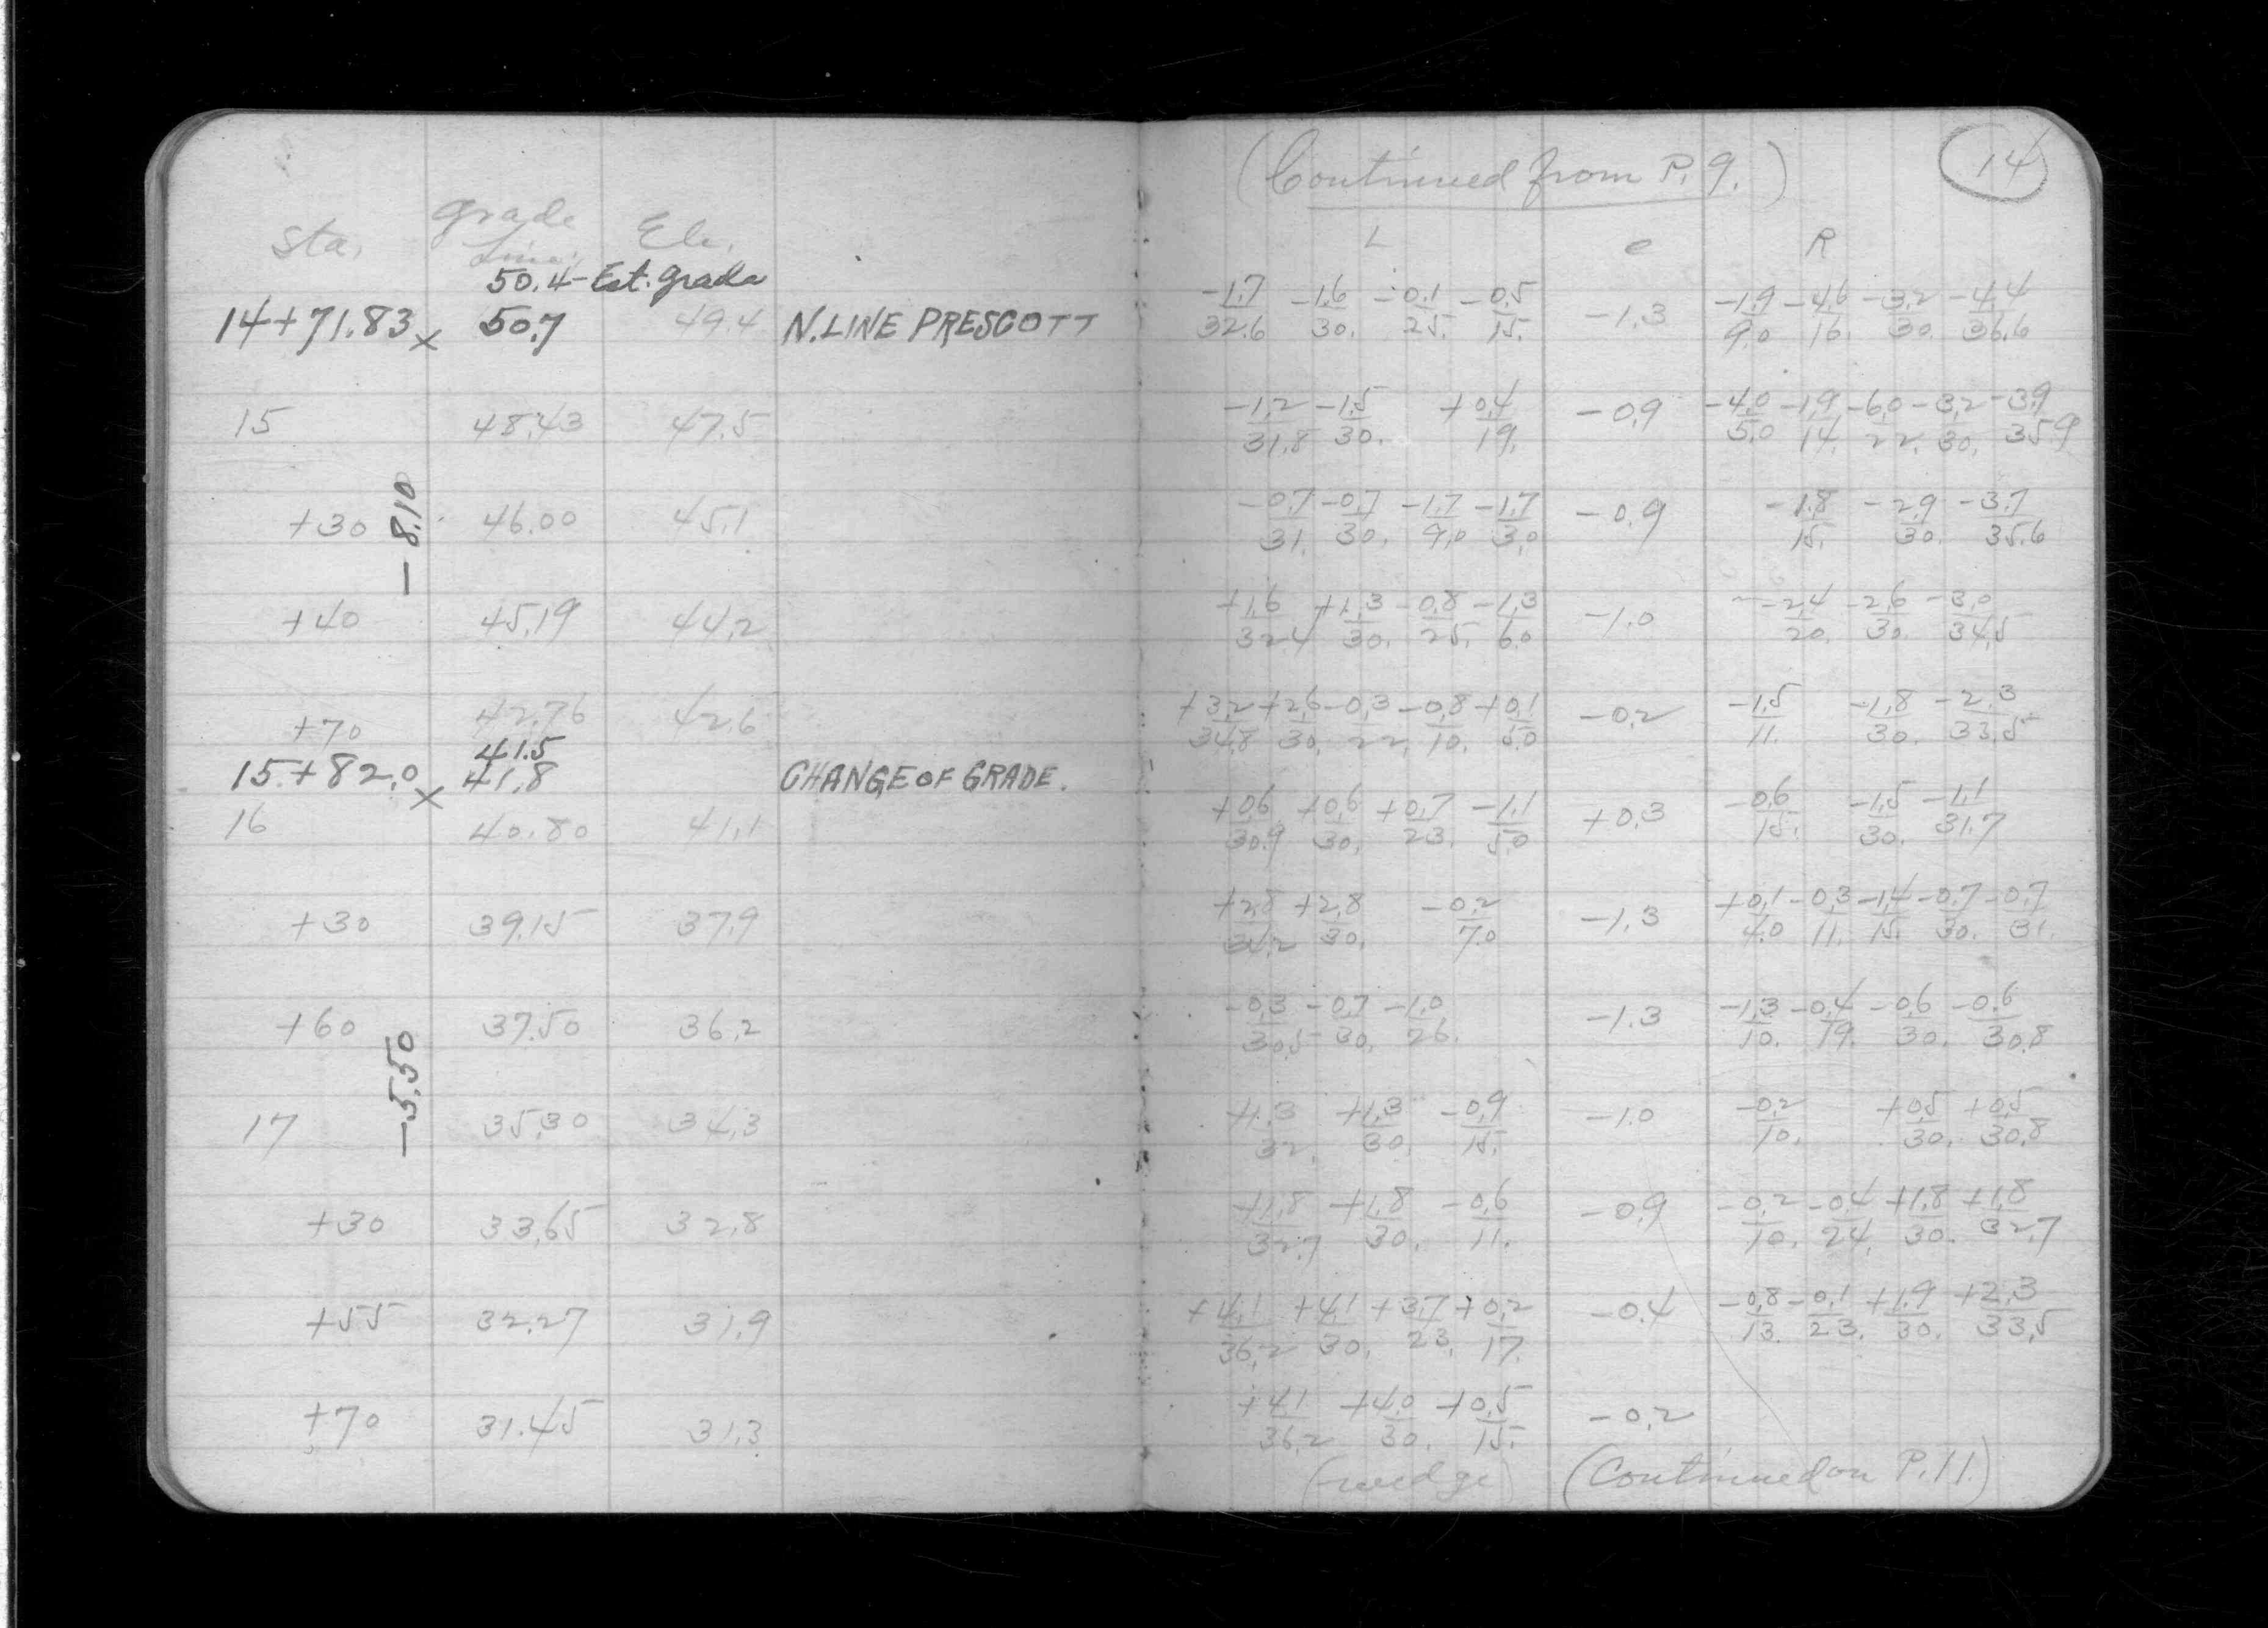 (Continued from P. 9.) 14
Sta. grade Line. Ele. L C R
50.4 - Est. grade
14+71.83 x 50.7 49.4 N. LINE PRESCOTT -1.7/32.6 -1.6/30. -0.1/25. -0.5/15. -1.3 -1.9/9.0 -4.6/16. -3.2/30. -4.4/36.6
15 48.43 47.5 -1.2/31.8 -1.5/30. +0.4/19. -0.9 -4.0/5.0 -1.9/14. -6.0/22. -3.2/30. -3.9/35.9
-8.10
+30 46.00 45.1 -0.7/31. -0.7/30. -1.7/9.0 -1.7/3.0 -0.9 -1.8/15. -2.9/30. -3.7/35.6
+40 45.19 44.2 +1.6/32.4 +1.3/30. -0.8/25. -1.3/6.0 -1.0 -2.4/20. -2.6/30. -3.0/34.5
+70 42.76 42.6 +3.2/34.8 +2.6/30. -0.3/22. -0.8/10. +0.1/5.0 -0.2 -1.5/11. -1.8/30. -2.3/33.5
41.5
15+82.0 x 41.8 CHANGE OF GRADE.
16 40.80 41.1 +0.6/30.9 +0.6/30. +0.7/23. -1.1/5.0 +0.3 -0.6/15. -1.5/30. -1.1/31.7
+30 39.15 37.9 +2.8/34.2 +2.8/30. -0.2/7.0 -1.3 +0.1/4.0 -0.3/11. -1.4/15. -0.7/30. -0.7/31.
+60 37.50 36.2 -0.3/30.5 -0.7/30. -1.0/26. -1.3 -1.3/10. -0.4/19. -0.6/30. -0.6/30.8
-5.50
17 35.30 34.3 +1.3/32. +1.3/30. -0.9/15. -1.0 -0.2/10. +0.5/30. +0.5/30.8
+30 33.65 32.8 +1.8/32.7 +1.8/30. -0.6/11. -0.9 -0.2/10. -0.4/24. +1.8/30. +1.8/32.7
+55 32.27 31.9 +4.1/36.2 +4.1/30. +3.7/23. +0.2/17. -0.4 -0.8/13. -0.1/23. +1.9/30. +2.3/33.5
+70 31.45 31.3 +4.1/36.2 +4.0/30. +0.5/15. -0.2
(wedge) (Continued on P. 11.)